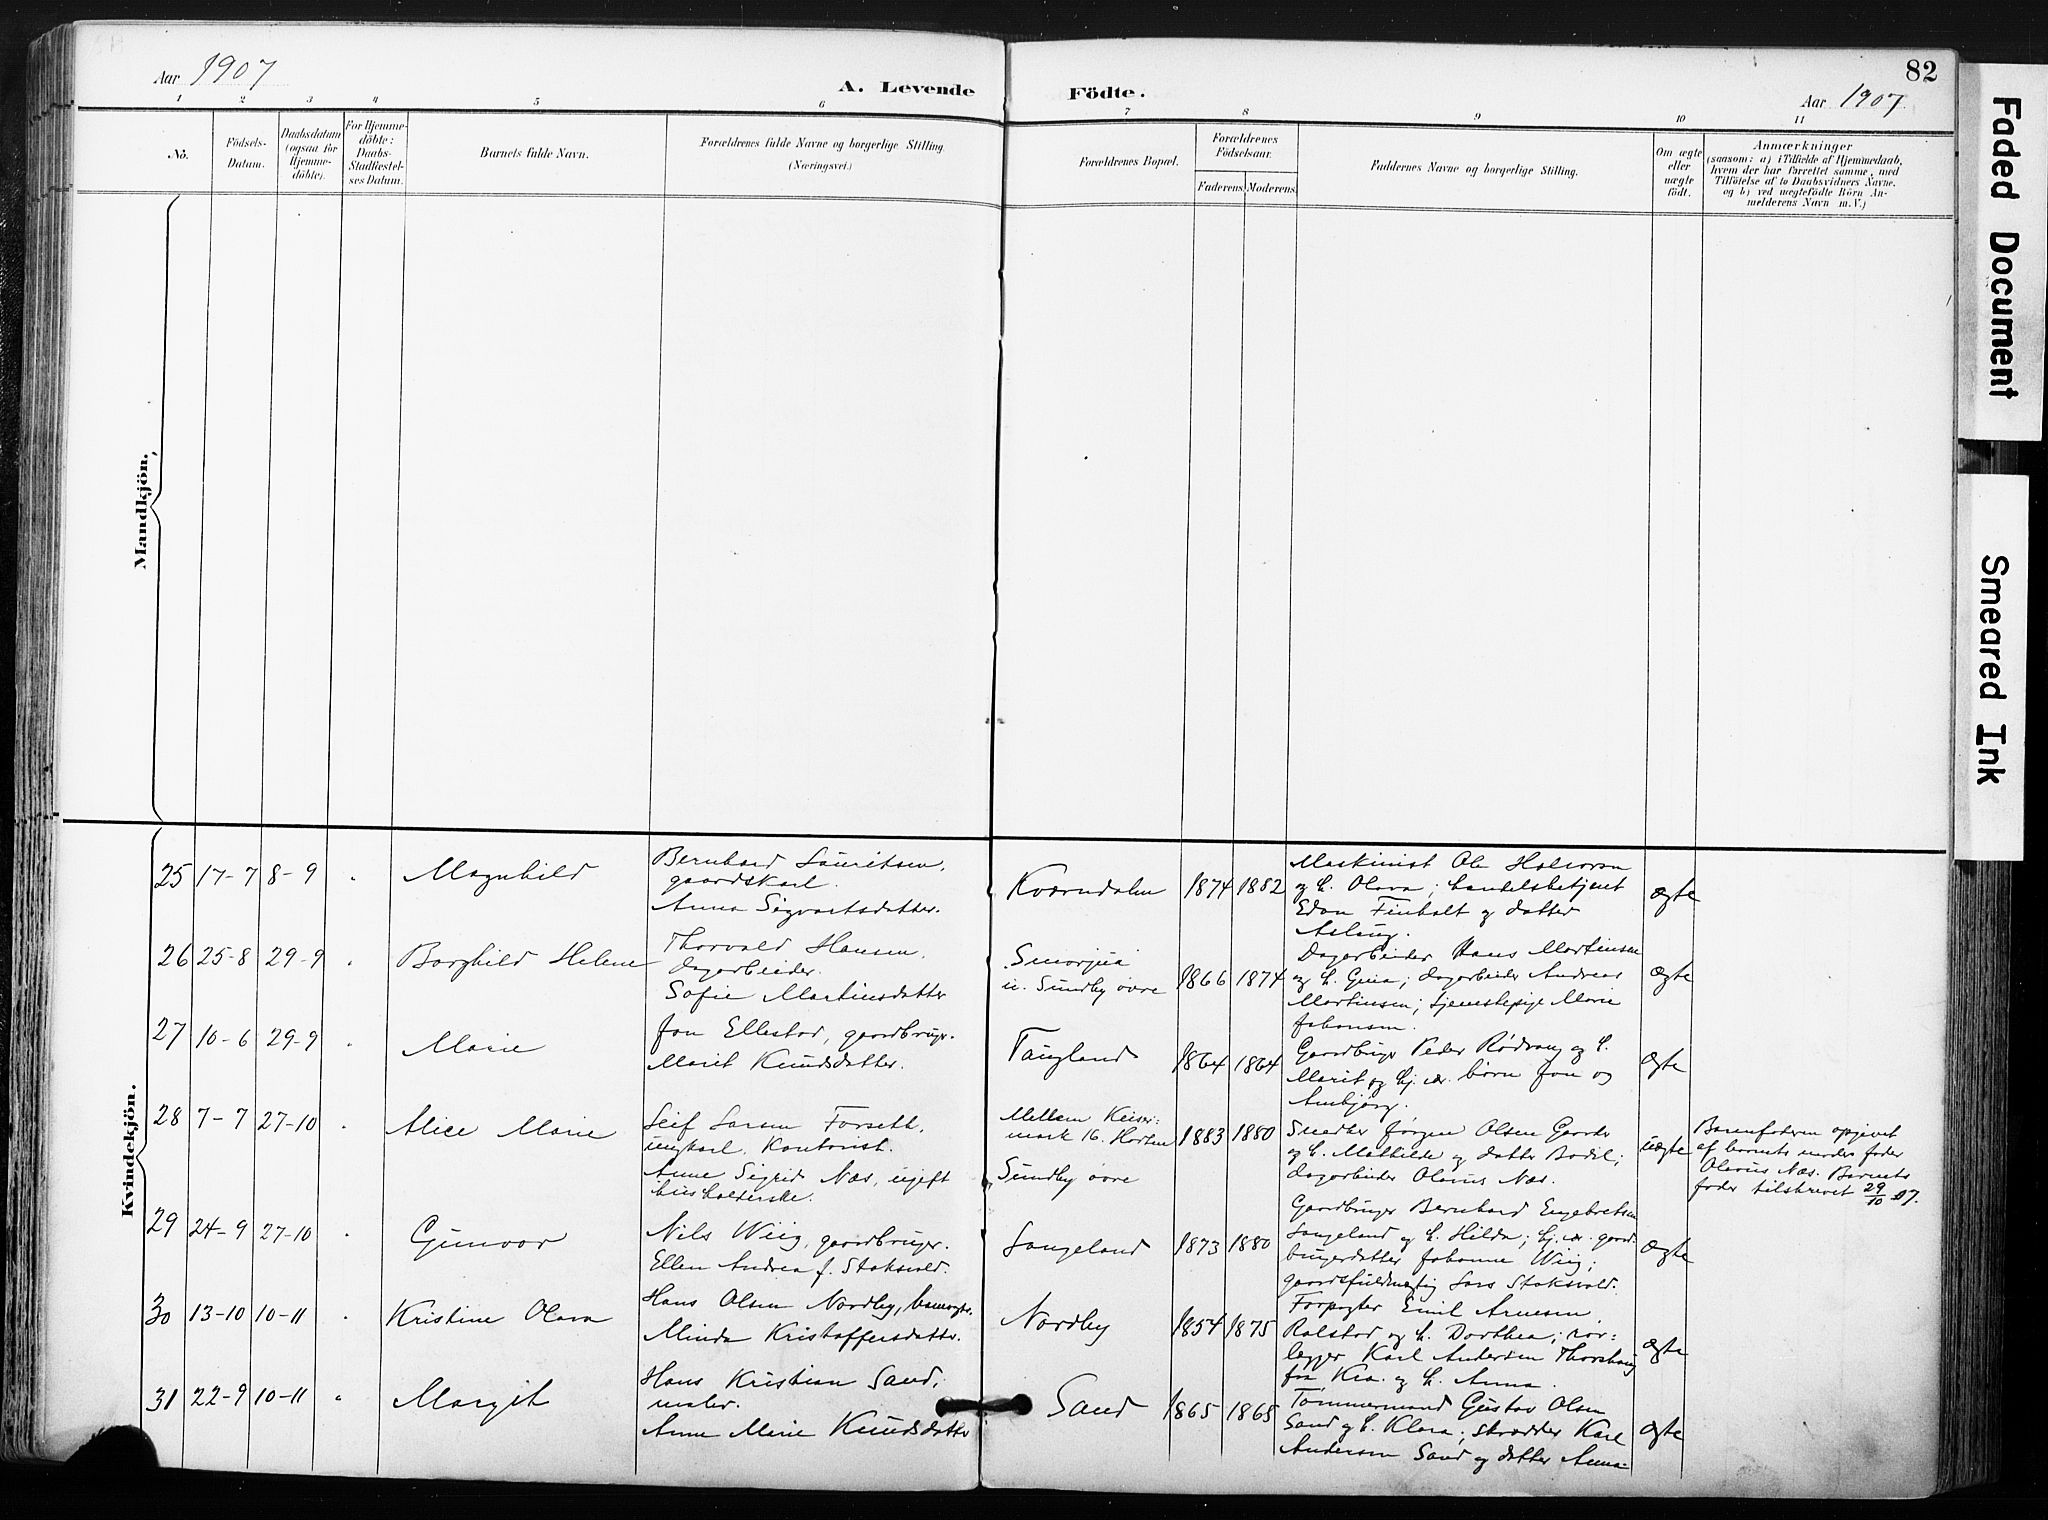 82
Aar 1907
A. Levende
Födte.
Aar 1907
1 2 3 4 5 6 7 8 9 10 11
No.
Födsels-
Datum.
Daabsdatum
(ogsaa for
Hjemme-
döbte).
For Hjemme-
döbte:
Daabs-
Stadfæstel-
ses Datum.
Barnets fulde Navn.
Forældrenes fulde Navne og borgerlige Stilling.
(Næringsvei.)
Forældrenes Bopæl.
Forældrenes
Födselsaar.
Faderens. Moderens.
Faddernes Navne og borgerlige Stilling.
Om ægte
eller
uægte
födt.
Anmærkninger
(saasom: a) i Tilfælde af Hjemmedaab,
hvem der har forrettet samme, med
Tilföielse af to Daabsvidners Navne.
og b) ved uegtefödte Börn An-
melderens Navn m. V.)
Mandkjön.
Kvindekjön.
25 17-7 8-9 Magnhild
Bernhard Lauritsen,
gaardskarl.
Anna Sigvartsdatter.
Kværndalen 1874 1882
Maskinist Ole Halvorsen
og h. Olava; handelsbetjent
Edon Finholt og datter
Aslaug.
ægte
26 25-8 29-9 Borghild Helene
Thorvald Hansen,
dagarbeider.
Sofie Martinsdatter
Smorjua
u. Sundby øvre 1866 1874
Dagarbeider Hans Martinsen
og h. Gina; dagarbeider Andreas
Martinsen; tjenestepige Marie
Johansen.
ægte
27 10-6 29-9 Marie
Jon Ellestad, gaardbruger.
Marit Knudsdatter.
Taugland 1864 1864
Gaardbruger Peder Rødvang og h.
Marit og hj. vær. børn Jon og
Ambjørg.
ægte
28 7-7 27-10 Alice Marie
Leif Larsen Forseth,
ungkarl. Kontorist.
Anne Sigrid Næs, ugift
husholderske.
Mellem Keiser-
mark 16. Horten
Sundby øvre 1883 1880
Snedker Jørgen Olsen Gaarder
og h. Mathilde og datter Bodil;
dagarbeider Olavus Næs.
uægte
Barnefaderen opgivet
af barnets moders fader
Olavus Næs. Barnets
fader tilskrevet 29/10 07.
29 24-9 27-10 Gunvor
Nils Wiig, gaardbruger.
Ellen Andrea f. Stoksvold.
Langeland 1873 1880
Gaardbruger Bernhard Engebretsen
Langeland og h. Hilda; hj. vær. gaard-
brugerdatter Johanne Wiig;
gaardsfuldmægtig Lars Stoksvold.
ægte
30 13-10 10-11 Kristine Olava
Hans Olsen Nordby,
Minda Kristoffersdatter.
Nordby 1854 1875
Forpagter Emil Arnesen,
Ralstad og h. Dorthea; rør-
legger Karl Andersen Thorshaug
fra Kra. og h. Anna.
ægte
31 22-9 10-11 Margit
Hans Kristian Sand,
maler.
Anne Marie Knudsdatter
Sand 1865 1865
Tømmermand Gustav Olsen
Sand og h. Klara; skrædder Karl
Andersen Sand og datter Anna.
ægte
Faded Document
Smeared Ink